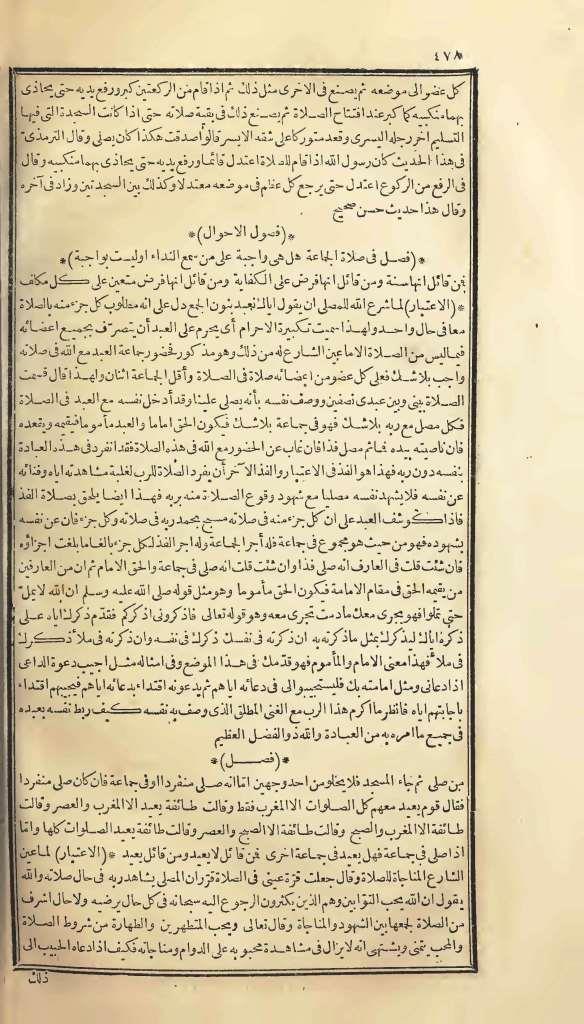 ٤٧٨
كل عضو الى موضعه ثم يصنع فى الاخرى مثل ذلك ثم اذا قام من الركعتين كبر ورفع يديه حتى يحاذى
بهما منكبيه كما كبر عند افتتاح الصلاة ثم يصنع ذلك فى بقية صلاته حتى اذا كانت السجدة التى فيها
التسليم اخر رجله اليسرى وقعد متوركا على شقه الايسر قالوا صدقت هكذا كان يصلى وقال الترمذى
فى هذا الحديث كان رسول الله اذا قام للصلاة اعتدل قائما ورفع يديه حتى يحاذى بهما منكبيه وقال
فى الرفع من الركوع اعتدل حتى يرجع كل عظم فى موضعه معتدلا وكذلك بين السجدتين وزاد فى آخره
وقال هذا حديث حسن صحيح
*(فصول الاحوال)*
*(فصل فى صلاة الجماعة هل هى واجبة على من سمع النداء او ليست بواجبة)*
فمن قائل انها سنة ومن قائل انها فرض على الكفاية ومن قائل انها فرض متعين على كل مكلف
*(الاعتبار) لما شرع الله للمصلى ان يقول اياك نعبد بنون الجمع دل على انه مطلوب كل جزء منه بالصلاة
معا فى حال واحد ولهذا سميت تكبيرة الاحرام أى يحرم على العبد أن يتصرف بجميع اعضائه
فيما ليس من الصلاة الا ما عين الشارع له من ذلك وهو مذكور فحضور جماعة العبد مع الله فى صلاته
واجب بلا شك فعلى كل عضو من اعضائه صلاة فى الصلاة وأقل الجماعة اثنان ولهذا قال قسمت
الصلاة بينى وبين عبدى نصفين ووصف نفسه بأنه يصلى علينا وقد أدخل نفسه مع العبد فى الصلاة
فكل مصل مع ربه بلا شك فهو فى جماعة بلا شك فيكون الحق اماما والعبد مأموما فيقيمه ويقعده
فان ناصيته بيده فما ثم مصل فذا فان غاب عن الحضور مع الله فى هذه الصلاة فقد انفرد فى هذه العبادة
بنفسه دون ربه فهذا هو الفذ فى الاعتبار والفذ الآخر أن يفرد الصلاة للرب لغلبة مشاهدته اياه وفنائه
عن نفسه فلا يشهد نفسه مصليا مع شهود وقوع الصلاة منه بربه فهذا ايضا يلحق بصلاة الفذ
فاذا كوشف العبد على ان كل جزء منه فى صلاته مسبح بحمد ربه فى صلاته وكل جزء فان عن نفسه
بشهوده فهو من حيث هو مجموع فى جماعة فله أجر الجماعة وله اجر الفذ لكل جزء بالغا ما بلغت اجزاؤه
فان شئت قلت فى العارف انه صلى فذا وان شئت قلت انه صلى فى جماعة والحق الامام ثم ان من العارفين
من يقيمه الحق فى مقام الامامة فيكون الحق مأموما وهو مثل قوله صلى الله عليه وسلم ان الله لا يمل
حتى تملوا فهو يجرى معك ما دمت تجرى معه وهو قوله تعالى فاذكرونى اذكركم فقدم ذكرك اياه على
ذكره اياك ليذكرك بمثل ما ذكرته به ان ذكرته فى نفسك ذكرك فى نفسه وان ذكرته فى ملأ ذكرك
فى ملأ فهذا معنى الامام والمأموم فهو قدمك فى هذا الموضع وفى امثاله مثل اجيب دعوة الداعى
اذا دعانى ومثل امامته بك فليستجيبوا لى فى دعائه اياهم ثم يدعونه اقتداء بدعائه اياهم فيجيبهم اقتداء
باجابتهم اياه فانظر ما اكرم هذا الرب مع الغنى المطلق الذى وصف به نفسه كيف ربط نفسه بعبده
فى جميع ما امره به من العبادة والله ذو الفضل العظيم
*(فصل)*
من صلى ثم جاء المسجد فلا يخلو من احد وجهين اما انه صلى منفردا او فى جماعة فان كان صلى منفردا
فقال قوم يعيد معهم كل الصلوات الا المغرب فقط وقالت طائفة يعيد الا المغرب والعصر وقالت
طائفة الا المغرب والصبح وقالت طائفة الا الصبح والعصر وقالت طائفة يعيد الصلوات كلها واما
اذا صلى فى جماعة فهل يعيد فى جماعة اخرى فمن قائل لا يعيد ومن قائل يعيد *(الاعتبار) لما عين
الشارع المناجاة للصلاة وقال جعلت قرة عينى فى الصلاة قرر ان المصلى يشاهد ربه فى حال صلاته والله
يقول ان الله يحب التوابين وهم الذين يكثرون الرجوع اليه سبحانه فى كل حال يرضيه ولا حال اشرف
من الصلاة لجمعها بين الشهود والمناجاة وقال تعالى ويحب المتطهرين والطهارة من شروط الصلاة
والمحب يتمنى ويشتهى انه لا يزال فى مشاهدة محبوبه على الدوام ومناجاته فكيف اذا دعاه الحبيب الى
ذلك